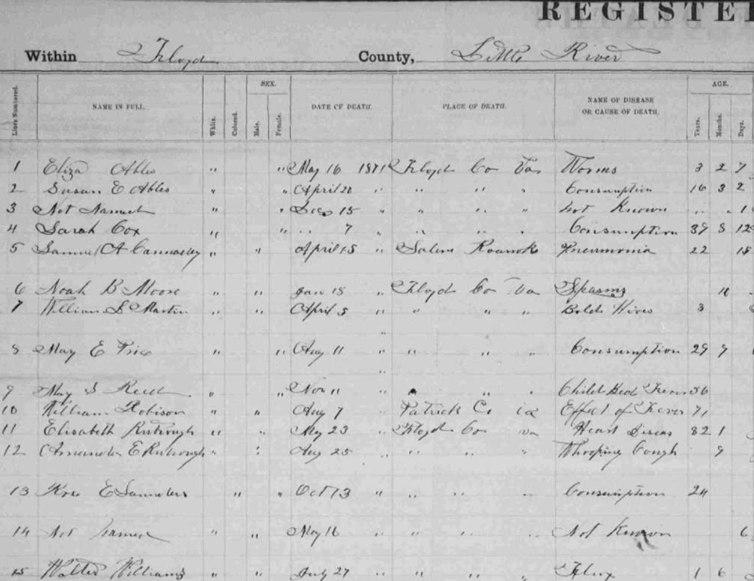 REGISTE
Within Floyd County, Little River
Lines Numbered. NAME IN FULL. White. Colored. SEX. Male. Female. DATE OF DEATH. PLACE OF DEATH. NAME OF DISEASE OR CAUSE OF DEATH. AGE. Years. Months. Days.
1 Eliza Ables " " May 16 1871 Floyd Co Va Worms 3 2 7
2 Susan E Ables " " April 28 " " " " Consumption 16 3 2
3 Not Named " Dec 15 " " " " Not Known " " 1
4 Sarah Cox " " " 7 " " " " Consumption 39 8 12
5 Samuel A " " April 15 " Salem Roanok Pneumonia 22 18
6 Noah B Moore " " Jan 18 " Floyd Co Va Spasms
7 William S Martin " " April 5 " " " " Bold Hives 3
8 May E " " Aug 11 " " " " Consumption 29 9
9 May S Reed " " Nov 11 " " " Child Bed 36
10 William Robison " " Aug 7 " Patrick Co Va Effect of Fever 71
11 Elisabeth " " May 23 " Floyd Co Va Heart Diseas 32 1
12 E " Aug 25 " " " " Whooping Cough 9
13 Rose E Saunders " " Oct 13 " " " " Consumption 24
14 Not Named " " May 16 " " " Not Known 6
15 Walter Williams " " July 27 " " " Flux 1 6